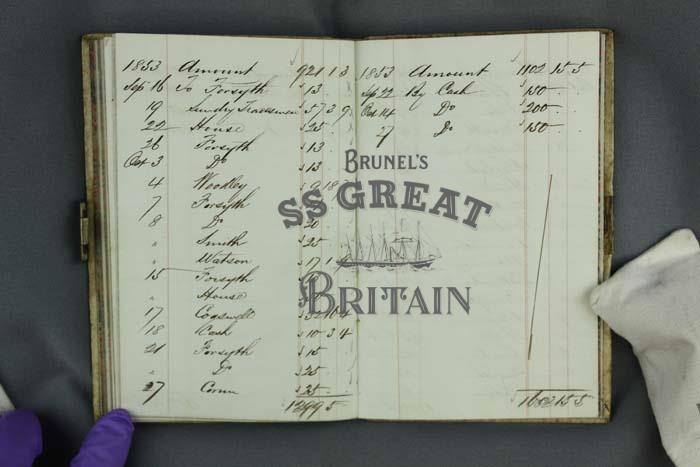 1853 Amount 921 1 3
Sep 16 To Forsyth 13
19 Sundry Tradesmen 573 9
22 House 25
26 Forsyth 13
Oct 3 Do 13
4 Woodley 9 18
7 Forsyth
8 Do 20
" Smith 25
" Watson 17 1
15 Forsyth
" House
17 Cogswell
18 Cash 10 3 4
21 Forsyth 15
" Do 25
27 25
1853 Amount 1102 15 5
Sep 22 By Cash 150
Oct 14 Do 200
Do 150
1602 15 5
BRUNEL'S
SS GREAT
BRITAIN